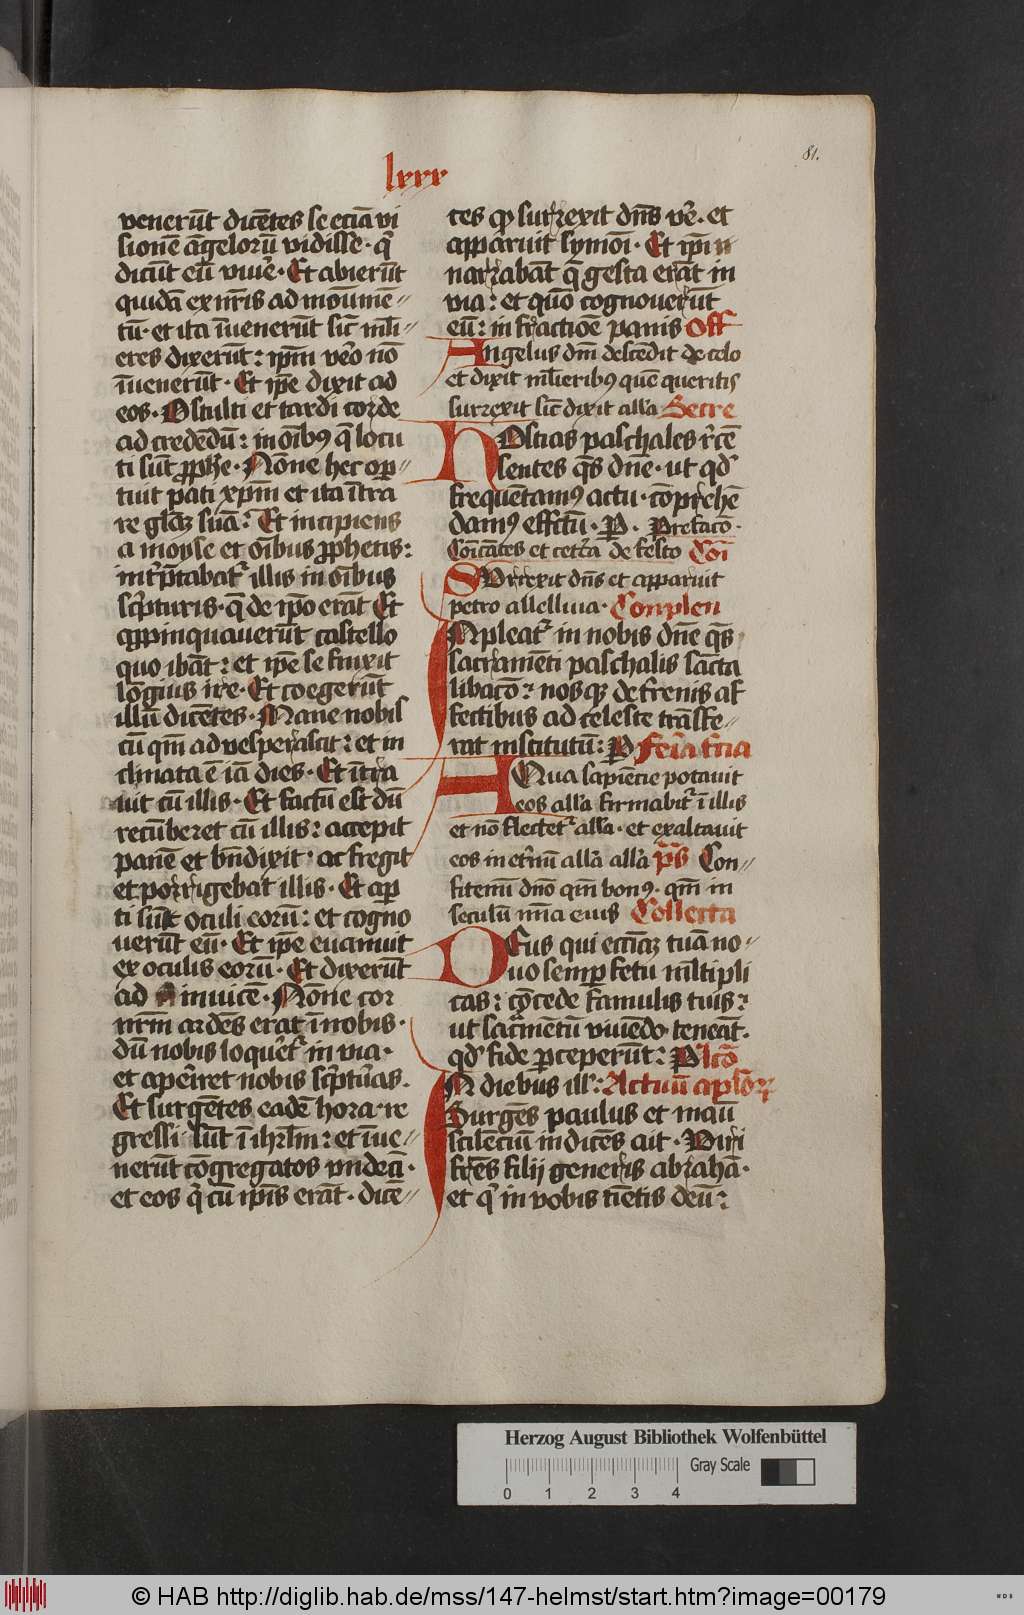 lxxx
81.
venerūt dicētes se eciā vi
sionē āgelorū vidisse · q̄
dicūt eū viuē · Et abierūt
quidā ex nr̄is ad monumē〃
tū · et ita īuenerūt sic̄ ml̄i〃
eres dixerūt : ip̄m ṽo nō
īuenerūt · Et ip̄e dixit ad
eos · O stulti et tardi corde
ad credēdū : in oīb9 q̄ locu
ti sūt ꝓphe · Nōne hec opͬ〃
tuit pati xp̄m et ita ītra
re gl̄aꝫ suā : Et incipiens
a moyse et oībus ꝓphetis :
int̄p̄tabatͬ illis in oībus
sc̄pturis · q̄ de ip̄o erāt Et
aꝓpinquauerūt castello
quo ibāt : et ip̄e se finxit
lōgius ire · Et coegerūt
illū dicētes · Mane nobis̄
cū qm̄ ad vesperascit : et in
clinata ē iā dies · Et ītra
uit cū illis · Et factū est dū
recūberet cū illis : accepit
panē et bn̄dixit · ac fregit
et porrigebat illis · Et aꝑ
ti sūt oculi eorū : et cogno
uerūt eū · Et ip̄e euanuit
ex oculis eorū · Et dixerūt
ad inuicē · Nōne cor
nr̄m ardēs erat ī nobis ·
dū nobis loquētͬ in via ·
et apēriret nobis sc̄ptūas .
Et surgētes eadē hora · re
gressi sūt ī ihrl̄m : et īue〃
nerūt cōgregatos vndeci ·
et eos q̄ cū ip̄is erāt · dicē〃
tes ꝙ surrexit dn̄s vē · et
apparuit symoī · Et ip̄i
narrabāt q̄ gesta erāt in
via : et quō cognouerūt
eū : in fractiōe panis Off
Angelus dn̄i descēdit de celo
et dixit ml̄ierib9 quē queritis
surrexit sic̄ dixit all̄a Secre
HOstias paschales rc̄ē
sentes q̄s dn̄e · ut qd̄
frequētam9 actu · cōprehē
dam9 effc̄tū · P . Prefacō ·
Coīcātes et cet̄a de festo Cōi
SUrrexit dn̄s et apparuit
petro allelluia · Conplen
IMpleatͬ in nobis dn̄e q̄s
sacramēti paschalis sācta
libacō : nosqꝫ de frenis af
fectibus ad celeste trāsfe〃
rat institutū : P Feria tcia
AQua sapiēcie potauit
eos all̄a firmabitͬ ī illis
et nō flectetͬ all̄a · et exaltauit
eos in et̄nū all̄a all̄a p̄s Con〃
fitemī dn̄o qm̄ bon9 · qm̄ in
seculū mīa eius Collecta
DEus qui ecc̄iaꝫ tuā no〃
uo semꝑ fetu ml̄tipli
cas : cōcede famulis tuis :
ut sacm̄ētū viuēdo teneāt ·
qd̄ fide ꝑceperūt : P lc̄o
IN diebus ill̄ : Actuū apl̄oꝝ
Surgēs paulus et manū
scilēciū indicēs ait · Viri
frēs filij generis abrahā ·
et q̄ in vobis tīetis deū :
Herzog August Bibliothek Wolfenbüttel
Gray Scale
0 1 2 3 4
© HAB http://diglib.hab.de/mss/147-helmst/start.htm?image=00179